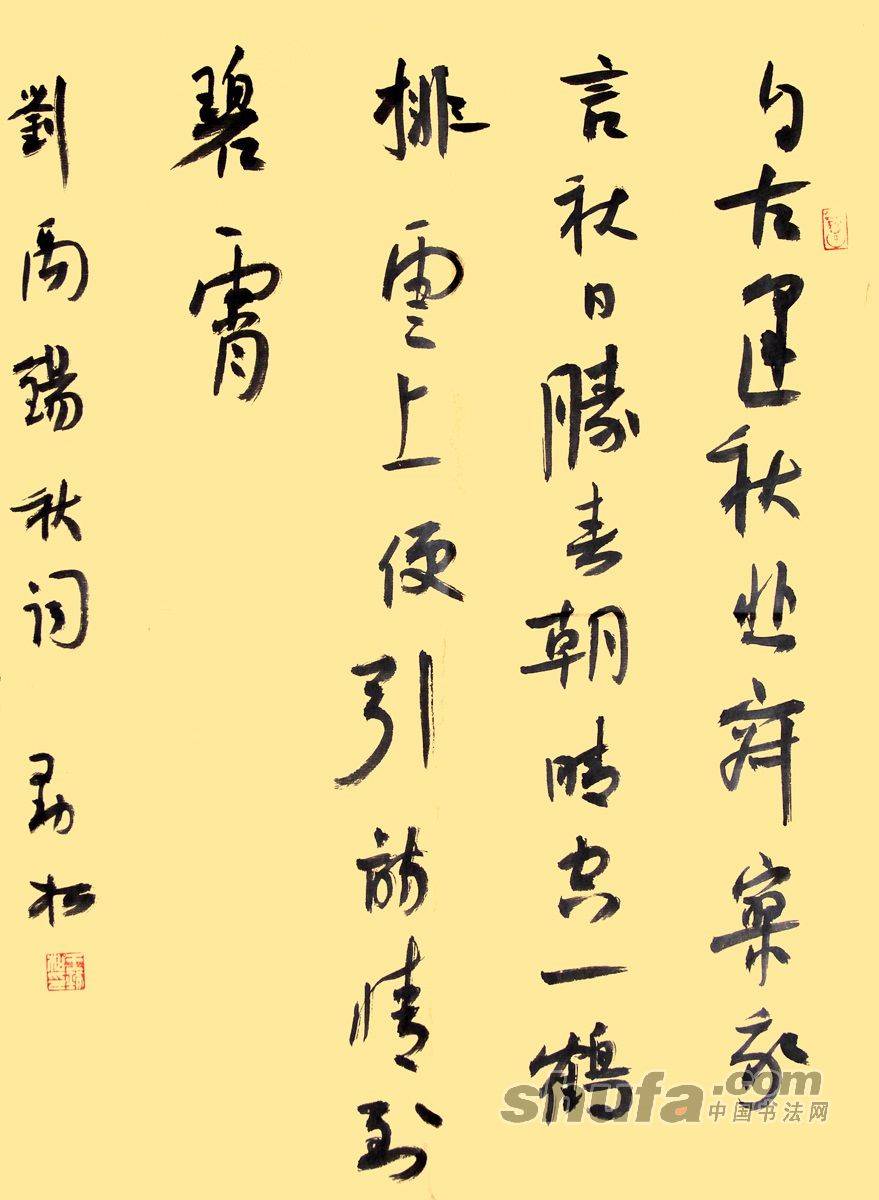 自古逢秋悲寂寥我
言秋日勝春朝晴空一鶴
排雲上便引詩情到
碧霄
劉禹錫秋詞 勁松
shufa.com
中国书法网